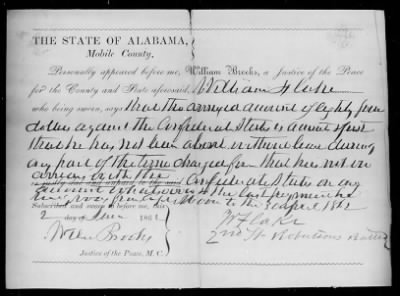 THE STATE OF ALABAMA,
Mobile County.
Personally appeared before me, William Brooks, a Justice of the Peace
for the County and State aforesaid, William F Cake
who being sworn, says that the annexed account of eighty four
dollars against the Confederate States is and just
that he has not been absent without leave during
any part of the time charged for that he is not in
arrears with the
justly due and unpaid to the said Confederate States on any
account whatsoever the last payment he
from to the 30 April 1862
Subscribed and sworn to before me, this
2 day of June 1862
Wm Brooks
Justice of the Peace, M. C.
W F Cake
2nd Lt Robertsons Battery